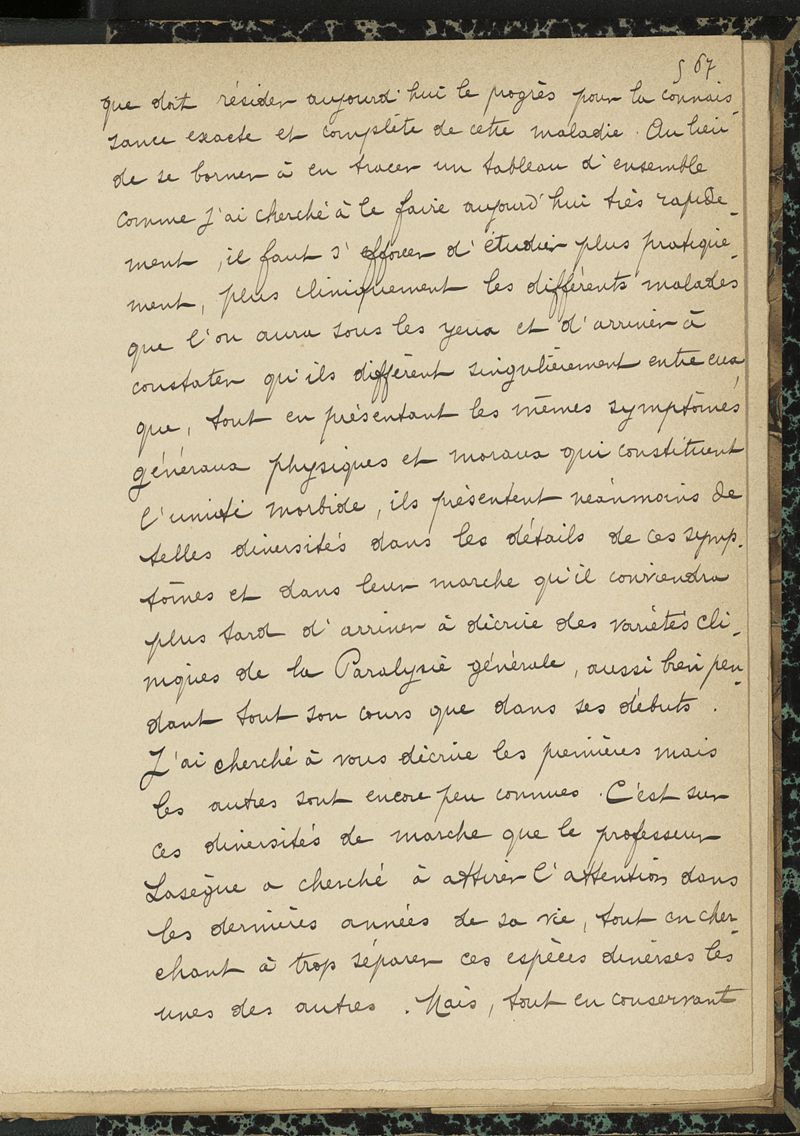 567
que doit résider aujourd'hui le progrès pour la connais-
sance exacte et complète de cette maladie. Au lieu
de se borner à en tracer un tableau d'ensemble
comme j'ai cherché à le faire aujourd'hui très rapide-
ment, il faut s'efforcer d'étudier plus pratique-
ment, plus cliniquement les différents malades
que l'on aura sous les yeux et d'arriver à
constater qu'ils diffèrent singulièrement entre eux,
que, tout en présentant les mêmes symptômes
généraux physiques et moraux qui constituent
l'unité morbide, ils présentent néanmoins de
telles diversités dans les détails de ces symp-
tômes et dans leur marche qu'il conviendra
plus tard d'arriver à décrire des variétés cli-
niques de la Paralysie générale, aussi bien pen-
dant tout son cours que dans ses débuts.
J'ai cherché à vous décrire les premières mais
les autres sont encore peu connues. C'est sur
ces diversités de marche que le professeur
Lasègue a cherché à attirer l'attention dans
les dernières années de sa vie, tout en cher-
chant à trop séparer ces espèces diverses les
unes des autres. Mais, tout en conservant